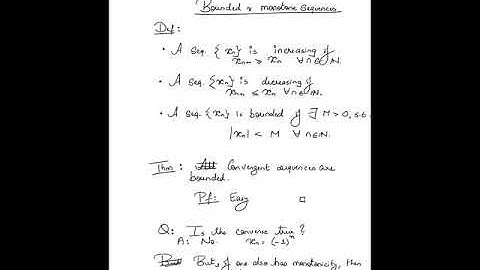 Bounded & monotone Sequences
Def:
• A seq. {xn} is increasing if
xn+1 ≥ xn ∀ n ∈ ℕ.
• A seq. {xn} is decreasing if
xn+1 ≤ xn ∀ n ∈ ℕ.
• A seq. {xn} is bounded if ∃ M > 0, s.t.
|xn| < M ∀ n ∈ ℕ.
Thm: Convergent sequences are
bounded.
Pf: Easy □
Q: Is the converse true?
A: No. xn = (-1)^n
But, if one also has monotonicity, then